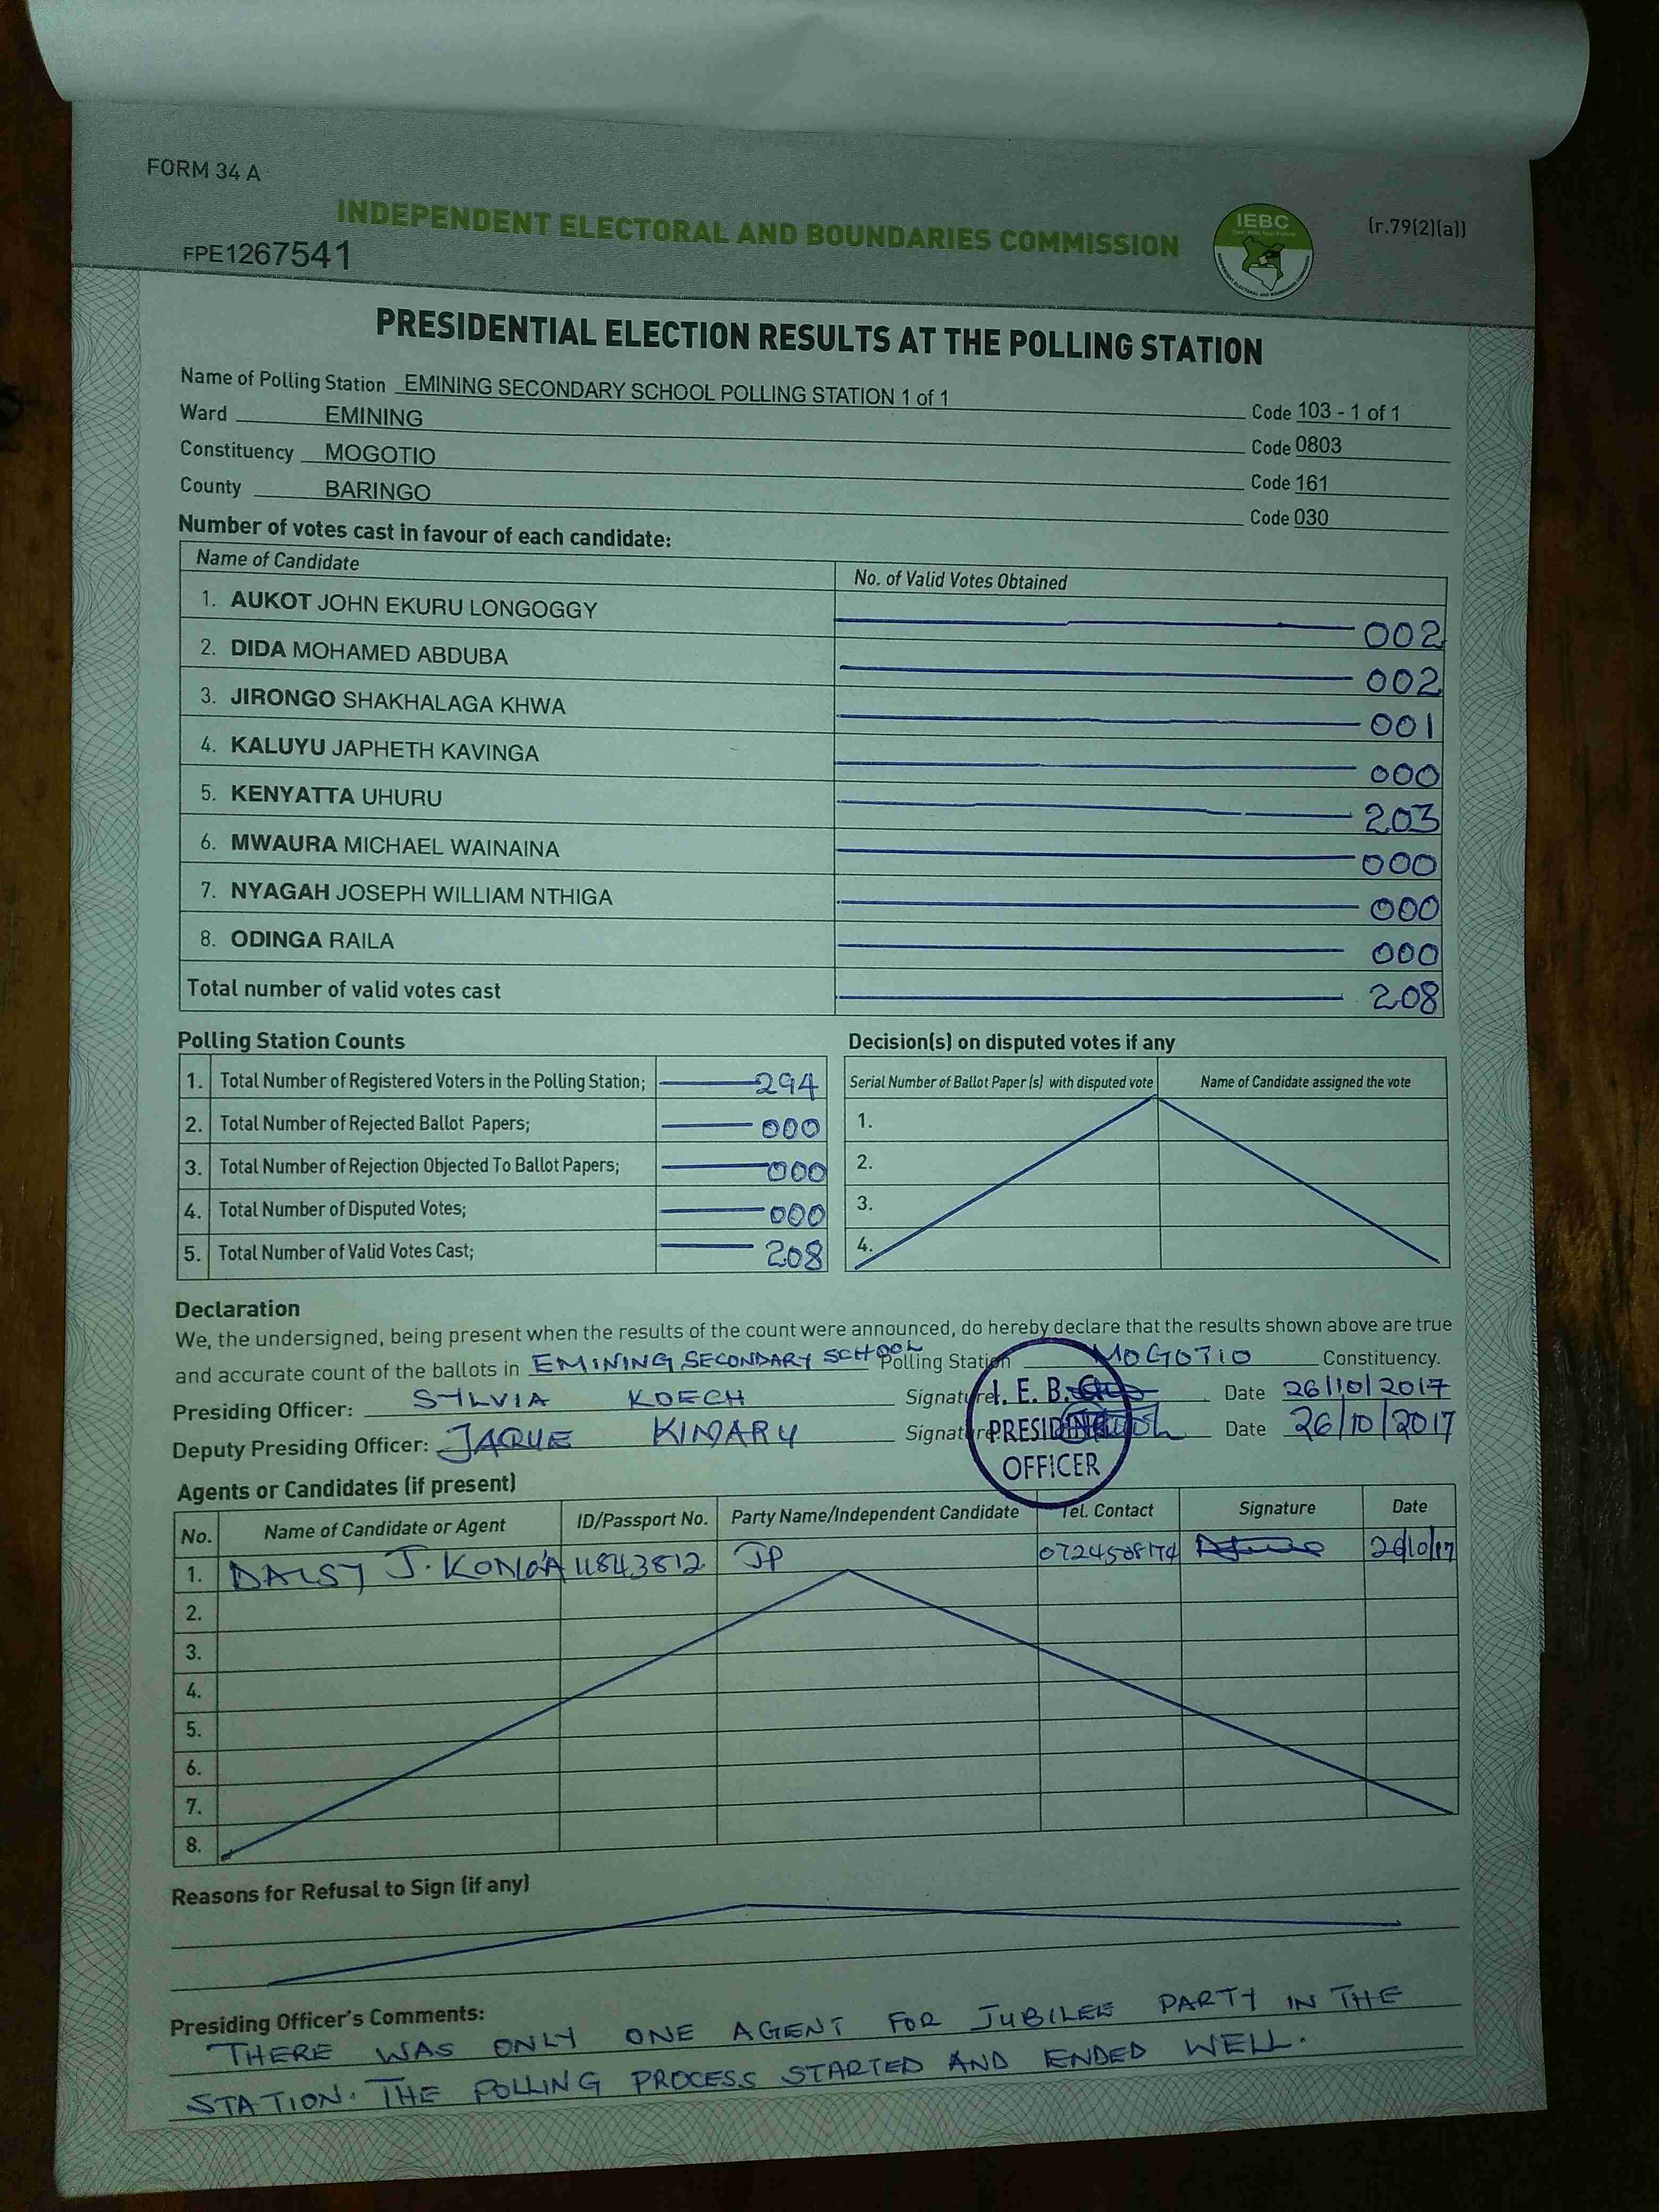 FORM 34 A
INDEPENDENT ELECTORAL AND BOUNDARIES COMMISSION
IEBC
(r.79(2)(a))
FPE1267541
PRESIDENTIAL ELECTION RESULTS AT THE POLLING STATION
Name of Polling Station EMINING SECONDARY SCHOOL POLLING STATION 1 of 1 Code 103 - 1 of 1
Ward EMINING Code 0803
Constituency MOGOTIO Code 161
County BARINGO Code 030
Number of votes cast in favour of each candidate:
Name of Candidate No. of Valid Votes Obtained
1. AUKOT JOHN EKURU LONGOGGY 002
2. DIDA MOHAMED ABDUBA 002
3. JIRONGO SHAKHALAGA KHWA 001
4. KALUYU JAPHETH KAVINGA 000
5. KENYATTA UHURU 203
6. MWAURA MICHAEL WAINAINA 000
7. NYAGAH JOSEPH WILLIAM NTHIGA 000
8. ODINGA RAILA 000
Total number of valid votes cast 208
Polling Station Counts
1. Total Number of Registered Voters in the Polling Station; 294
2. Total Number of Rejected Ballot Papers; 000
3. Total Number of Rejection Objected To Ballot Papers; 000
4. Total Number of Disputed Votes; 000
5. Total Number of Valid Votes Cast; 208
Decision(s) on disputed votes if any
Serial Number of Ballot Paper (s) with disputed vote Name of Candidate assigned the vote
1.
2.
3.
4.
Declaration
We, the undersigned, being present when the results of the count were announced, do hereby declare that the results shown above are true
and accurate count of the ballots in EMINING SECONDARY SCHOOL Polling Station MOGOTIO Constituency.
Presiding Officer: SYLVIA KOECH Signature Date 26/10/2017
Deputy Presiding Officer: JAQUE KIMARU Signature Date 26/10/2017
I. E. B. C
PRESIDING
OFFICER
Agents or Candidates (if present)
No. Name of Candidate or Agent ID/Passport No. Party Name/Independent Candidate Tel. Contact Signature Date
1. DAISY J. 11843812 JP 26/10/17
2.
3.
4.
5.
6.
7.
8.
Reasons for Refusal to Sign (if any)
Presiding Officer's Comments:
THERE WAS ONLY ONE AGENT FOR JUBILEE PARTY IN THE
STATION. THE POLLING PROCESS STARTED AND ENDED WELL.